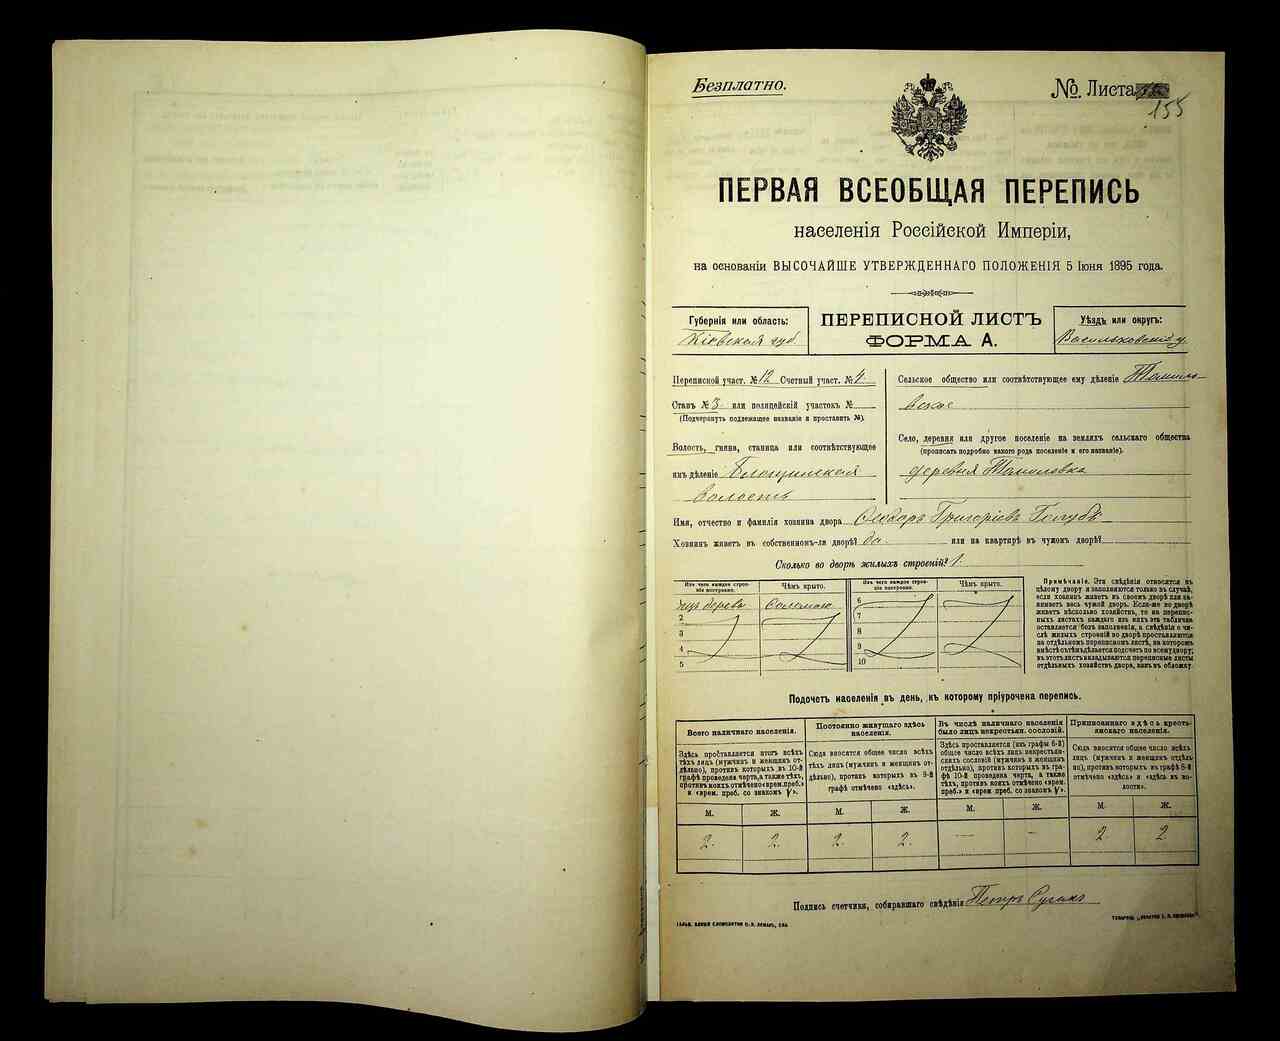 Безплатно.
№ Листа
155
ПЕРВАЯ ВСЕОБЩАЯ ПЕРЕПИСЬ
населенія Россійской Имперіи,
на основаніи ВЫСОЧАЙШЕ УТВЕРЖДЕННАГО ПОЛОЖЕНІЯ 5 Іюня 1895 года.
Губернія или область:
Кіевская губ.
ПЕРЕПИСНОЙ ЛИСТЪ
ФОРМА А.
Уѣздъ или округъ:
Васильковскій у.
Переписной участ. №12 Счетный участ. №4
Станъ №3 или полицейскій участокъ №
(Подчеркнуть подлежащее названіе и проставить №).
Волость, гмина, станица или соотвѣтствующее
имъ дѣленіе
волость
Сельское общество или соотвѣтствующее ему дѣленіе Томилов-
ское
Село, деревня или другое поселеніе на земляхъ сельскаго общества
(прописать подробно какого рода поселеніе и его названіе).
деревня Томиловка
Имя, отчество и фамилія хозяина двора Ѳеодоръ Григоріевъ Голубъ
Хозяинъ живетъ въ собственномъ-ли дворѣ? да. или на квартирѣ въ чужомъ дворѣ?
Сколько во дворѣ жилыхъ строеній? 1.
Изъ чего каждое строеніе построено.
Чѣмъ крыто.
Изъ чего каждое строеніе построено.
Чѣмъ крыто.
изъ дерева
Соломою
2
3
4
5
6
7
8
9
10
Примѣчаніе. Эти свѣдѣнія относятся къ
цѣлому двору и заполняются только въ случаѣ,
если хозяинъ живетъ въ своемъ дворѣ или за-
нимаетъ весь чужой дворъ. Если-же во дворѣ
живетъ нѣсколько хозяйствъ, то на перепис-
ныхъ листахъ каждаго изъ нихъ эта табличка
оставляется безъ заполненія, а свѣдѣнія о чи-
слѣ жилыхъ строеній во дворѣ проставляются
на отдѣльномъ переписномъ листѣ, на которомъ
вмѣстѣ съ тѣмъ дѣлается подсчетъ по всему двору;
въ этотъ листъ вкладываются переписные листы
отдѣльныхъ хозяйствъ двора, какъ въ обложку.
Подсчетъ населенія въ день, къ которому пріурочена перепись.
Всего наличнаго населенія.
Здѣсь проставляется итогъ всѣхъ
тѣхъ лицъ (мужчинъ и женщинъ от-
дѣльно), противъ которыхъ въ 10-й
графѣ проведена черта, а также тѣхъ,
противъ коихъ отмѣчено «врем. преб.»
и «врем. преб. со знакомъ V».
Постоянно живущаго здѣсь
населенія.
Сюда вносится общее число всѣхъ
тѣхъ лицъ (мужчинъ и женщинъ от-
дѣльно), противъ которыхъ въ 9-й
графѣ отмѣчено «здѣсь».
Въ числѣ наличнаго населенія
было лицъ некрестьян. сословій.
Здѣсь проставляется (изъ графы 6-й)
общее число всѣхъ лицъ некрестьян-
скихъ сословій (мужчинъ и женщинъ
отдѣльно), противъ которыхъ въ гра-
фѣ 10-й проведена черта, а также
тѣхъ, противъ коихъ отмѣчено «врем.
преб.» и «врем. преб. со знакомъ V».
Приписаннаго здѣсь кресть-
янскаго населенія.
Сюда вносится общее число всѣхъ
лицъ (мужчинъ и женщинъ отдѣль-
но), противъ которыхъ въ графѣ 8-й
отмѣчено «здѣсь» и «здѣсь въ во-
лости».
М. Ж. М. Ж. М. Ж. М. Ж.
2. 2. 2. 2. — - 2. 2.
Подпись счетчика, собиравшаго свѣдѣнія Петръ